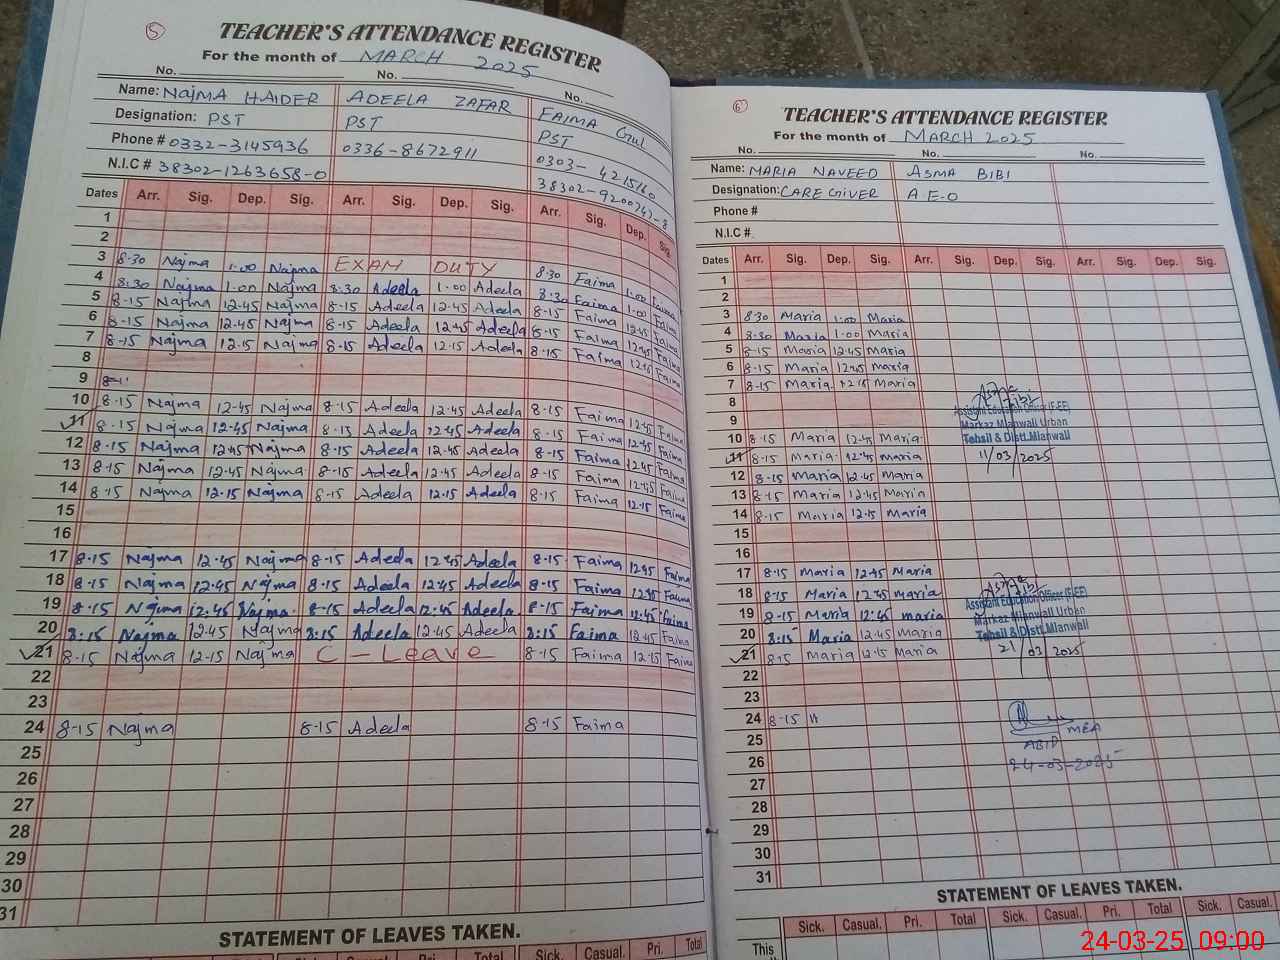 5
TEACHER'S ATTENDANCE REGISTER
For the month of MARCH 2025
No. No. No.
Name: NAJMA HAIDER ADEELA ZAFAR FAIMA GUL
Designation: PST PST PST
Phone # 0332-3145936 0336-8672911 0303-4215160
N.I.C # 38302-1263658-0 38302-9200747-8
Dates Arr. Sig. Dep. Sig. Arr. Sig. Dep. Sig. Arr. Sig. Dep. Sig.
1
2
3 8:30 Najma 1:00 Najma EXAM DUTY 8:30 Faima 1:00 Faima
4 8:30 Najma 1:00 Najma 8:30 Adeela 1:00 Adeela 8:30 Faima 1:00 Faima
5 8-15 Najma 12-45 Najma 8-15 Adeela 12-45 Adeela 8-15 Faima 12-45 Faima
6 8-15 Najma 12-45 Najma 8-15 Adeela 12-45 Adeela 8-15 Faima 12-45 Faima
7 8-15 Najma 12-15 Najma 8-15 Adeela 12-15 Adeela 8-15 Faima 12-15 Faima
8
9
10 8-15 Najma 12-45 Najma 8-15 Adeela 12-45 Adeela 8-15 Faima 12-45 Faima
11 8-15 Najma 12-45 Najma 8-15 Adeela 12-45 Adeela 8-15 Faima 12-45 Faima
12 8-15 Najma 12-45 Najma 8-15 Adeela 12-45 Adeela 8-15 Faima 12-45 Faima
13 8-15 Najma 12-45 Najma 8-15 Adeela 12-45 Adeela 8-15 Faima 12-45 Faima
14 8-15 Najma 12-15 Najma 8-15 Adeela 12-15 Adeela 8-15 Faima 12-15 Faima
15
16
17 8-15 Najma 12-45 Najma 8-15 Adeela 12-45 Adeela 8-15 Faima 12-45 Faima
18 8-15 Najma 12-45 Najma 8-15 Adeela 12-45 Adeela 8-15 Faima 12-45 Faima
19 8-15 Najma 12-45 Najma 8-15 Adeela 12-45 Adeela 8-15 Faima 12-45 Faima
20 8:15 Najma 12-45 Najma 8:15 Adeela 12-45 Adeela 8:15 Faima 12-45 Faima
21 8-15 Najma 12-15 Najma C-Leave 8-15 Faima 12-15 Faima
22
23
24 8-15 Najma 8-15 Adeela 8-15 Faima
25
26
27
28
29
30
31
STATEMENT OF LEAVES TAKEN.
Sick. Casual. Pri. Total
6
TEACHER'S ATTENDANCE REGISTER
For the month of MARCH 2025
No. No. No.
Name: MARIA NAVEED ASMA BIBI
Designation: CARE GIVER A E.O
Phone #
N.I.C #
Dates Arr. Sig. Dep. Sig. Arr. Sig. Dep. Sig. Arr. Sig. Dep. Sig.
1
2
3 8:30 Maria 1:00 Maria
4 8:30 Maria 1:00 Maria
5 8-15 Maria 12-45 Maria
6 8-15 Maria 12-45 Maria
7 8-15 Maria 12-15 Maria
8
9
Assistant Education Officer (F-EE)
Markaz Mianwali Urban
10 8-15 Maria 12-45 Maria Tehsil & Distt.Mianwali
11 8-15 Maria 12-45 Maria 11/03/2025
12 8-15 Maria 12-45 Maria
13 8-15 Maria 12-45 Maria
14 8-15 Maria 12-15 Maria
15
16
17 8-15 Maria 12-45 Maria
18 8-15 Maria 12-45 Maria Assistant Education Officer (F-EE)
19 8-15 Maria 12-45 maria Markaz Mianwali Urban
20 8:15 Maria 12-45 Maria Tehsil & Distt.Mianwali
21 8-15 Maria 12-15 Maria 21/03/2025
22
23
24 8-15
25 ABID MEA
26 24-03-2025
27
28
29
30
31
STATEMENT OF LEAVES TAKEN.
Sick. Casual. Pri. Total Sick. Casual. Pri. Total Sick. Casual.
This
24-03-25 09:00